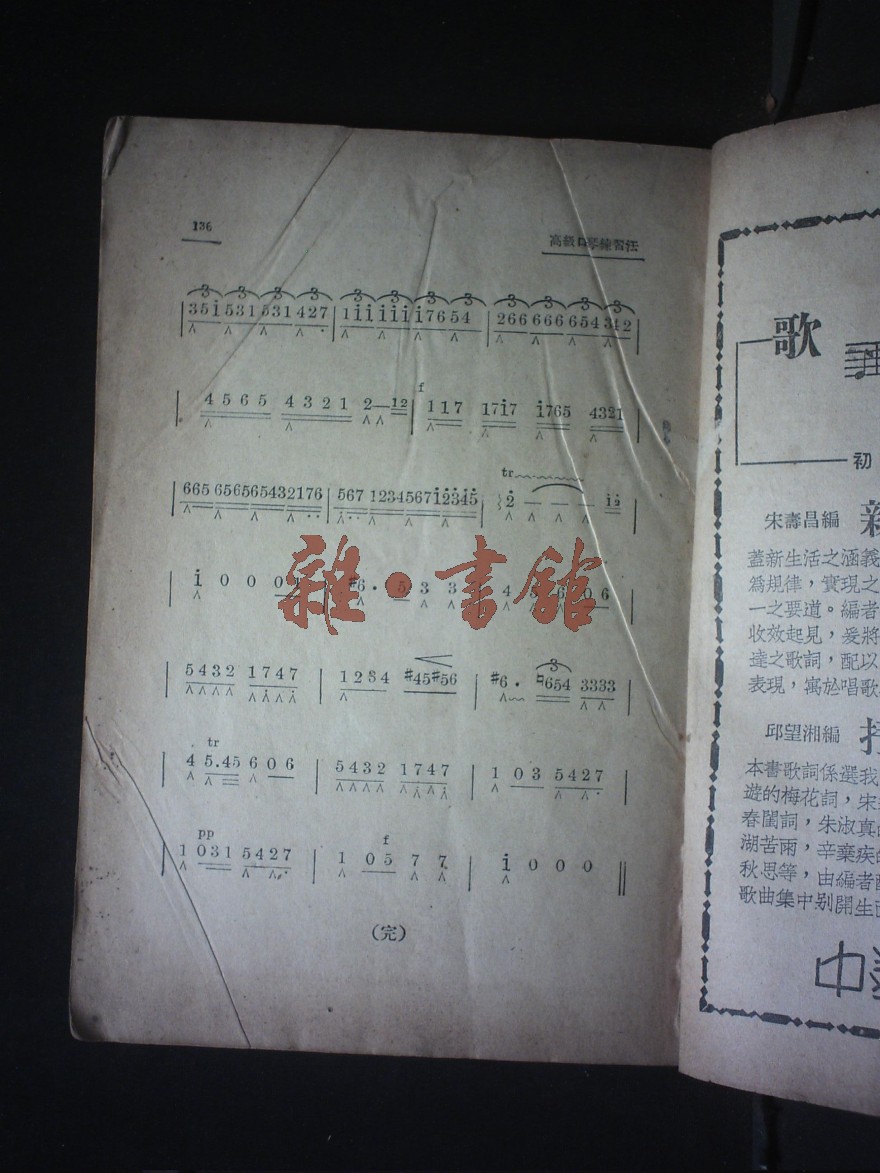 136
高級口琴練習法
3 3 3 3 3 3 3 3 3 3 3
| 35i 531 531 427 | 1ii iii i76 54 | 266 666 654 342 |
f
| 4565 4321 2—12 | 117 1717 i765 4321 |
tr
| 665 656565432176 | 567 1234567i2345 | 2 — — — i2 |
| i 0 0 0 #6· 5 3 3 4 5 6 0 6 |
3
| 5432 1747 | 1234 #45#56 | #6· ♮654 3333 |
tr
| 4 5.45 6 06 | 5432 1747 | 1 03 5427 |
pp f
| 1 031 5427 | 1 05 7 7 | i 0 0 0 ‖
(完)
雜·書館
歌
初
宋壽昌編
蓋新生活之涵義
為規律，實現之
一之要道。編者
收效起見，爰將
達之歌詞，配以
表現，寓於唱歌
邱望湘編
本書歌詞係選我
遊的梅花詞，宋
春閨詞，朱淑真
湖苦雨，辛棄疾
秋思等，由編者
歌曲集中別開生
中